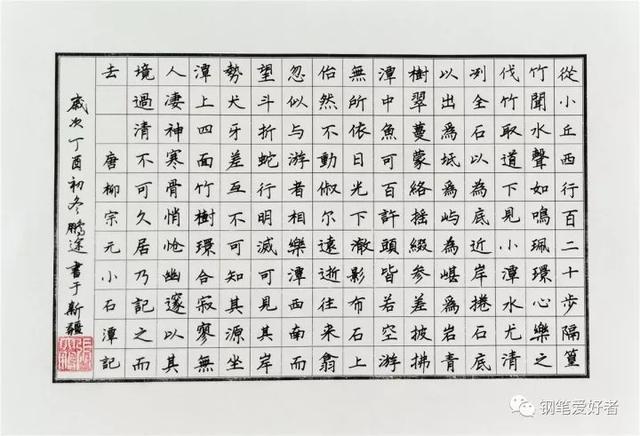 從小丘西行百二十步隔篁
竹聞水聲如鳴珮環心樂之
伐竹取道下見小潭水尤清
冽全石以為底近岸捲石底
以出為坻為嶼為嵁為岩青
樹翠蔓蒙絡摇綴參差披拂
潭中魚可百許頭皆若空游
無所依日光下澈影布石上
佁然不動俶尔遠逝往来翕
忽似与游者相樂潭西南而
望斗折蛇行明滅可見其岸
勢犬牙差互不可知其源坐
潭上四面竹樹環合寂寥無
人凄神寒骨悄愴幽邃以其
境過清不可久居乃記之而
去 唐柳宗元小石潭記
歲次丁酉初冬鵬途書于新疆
钢笔爱好者